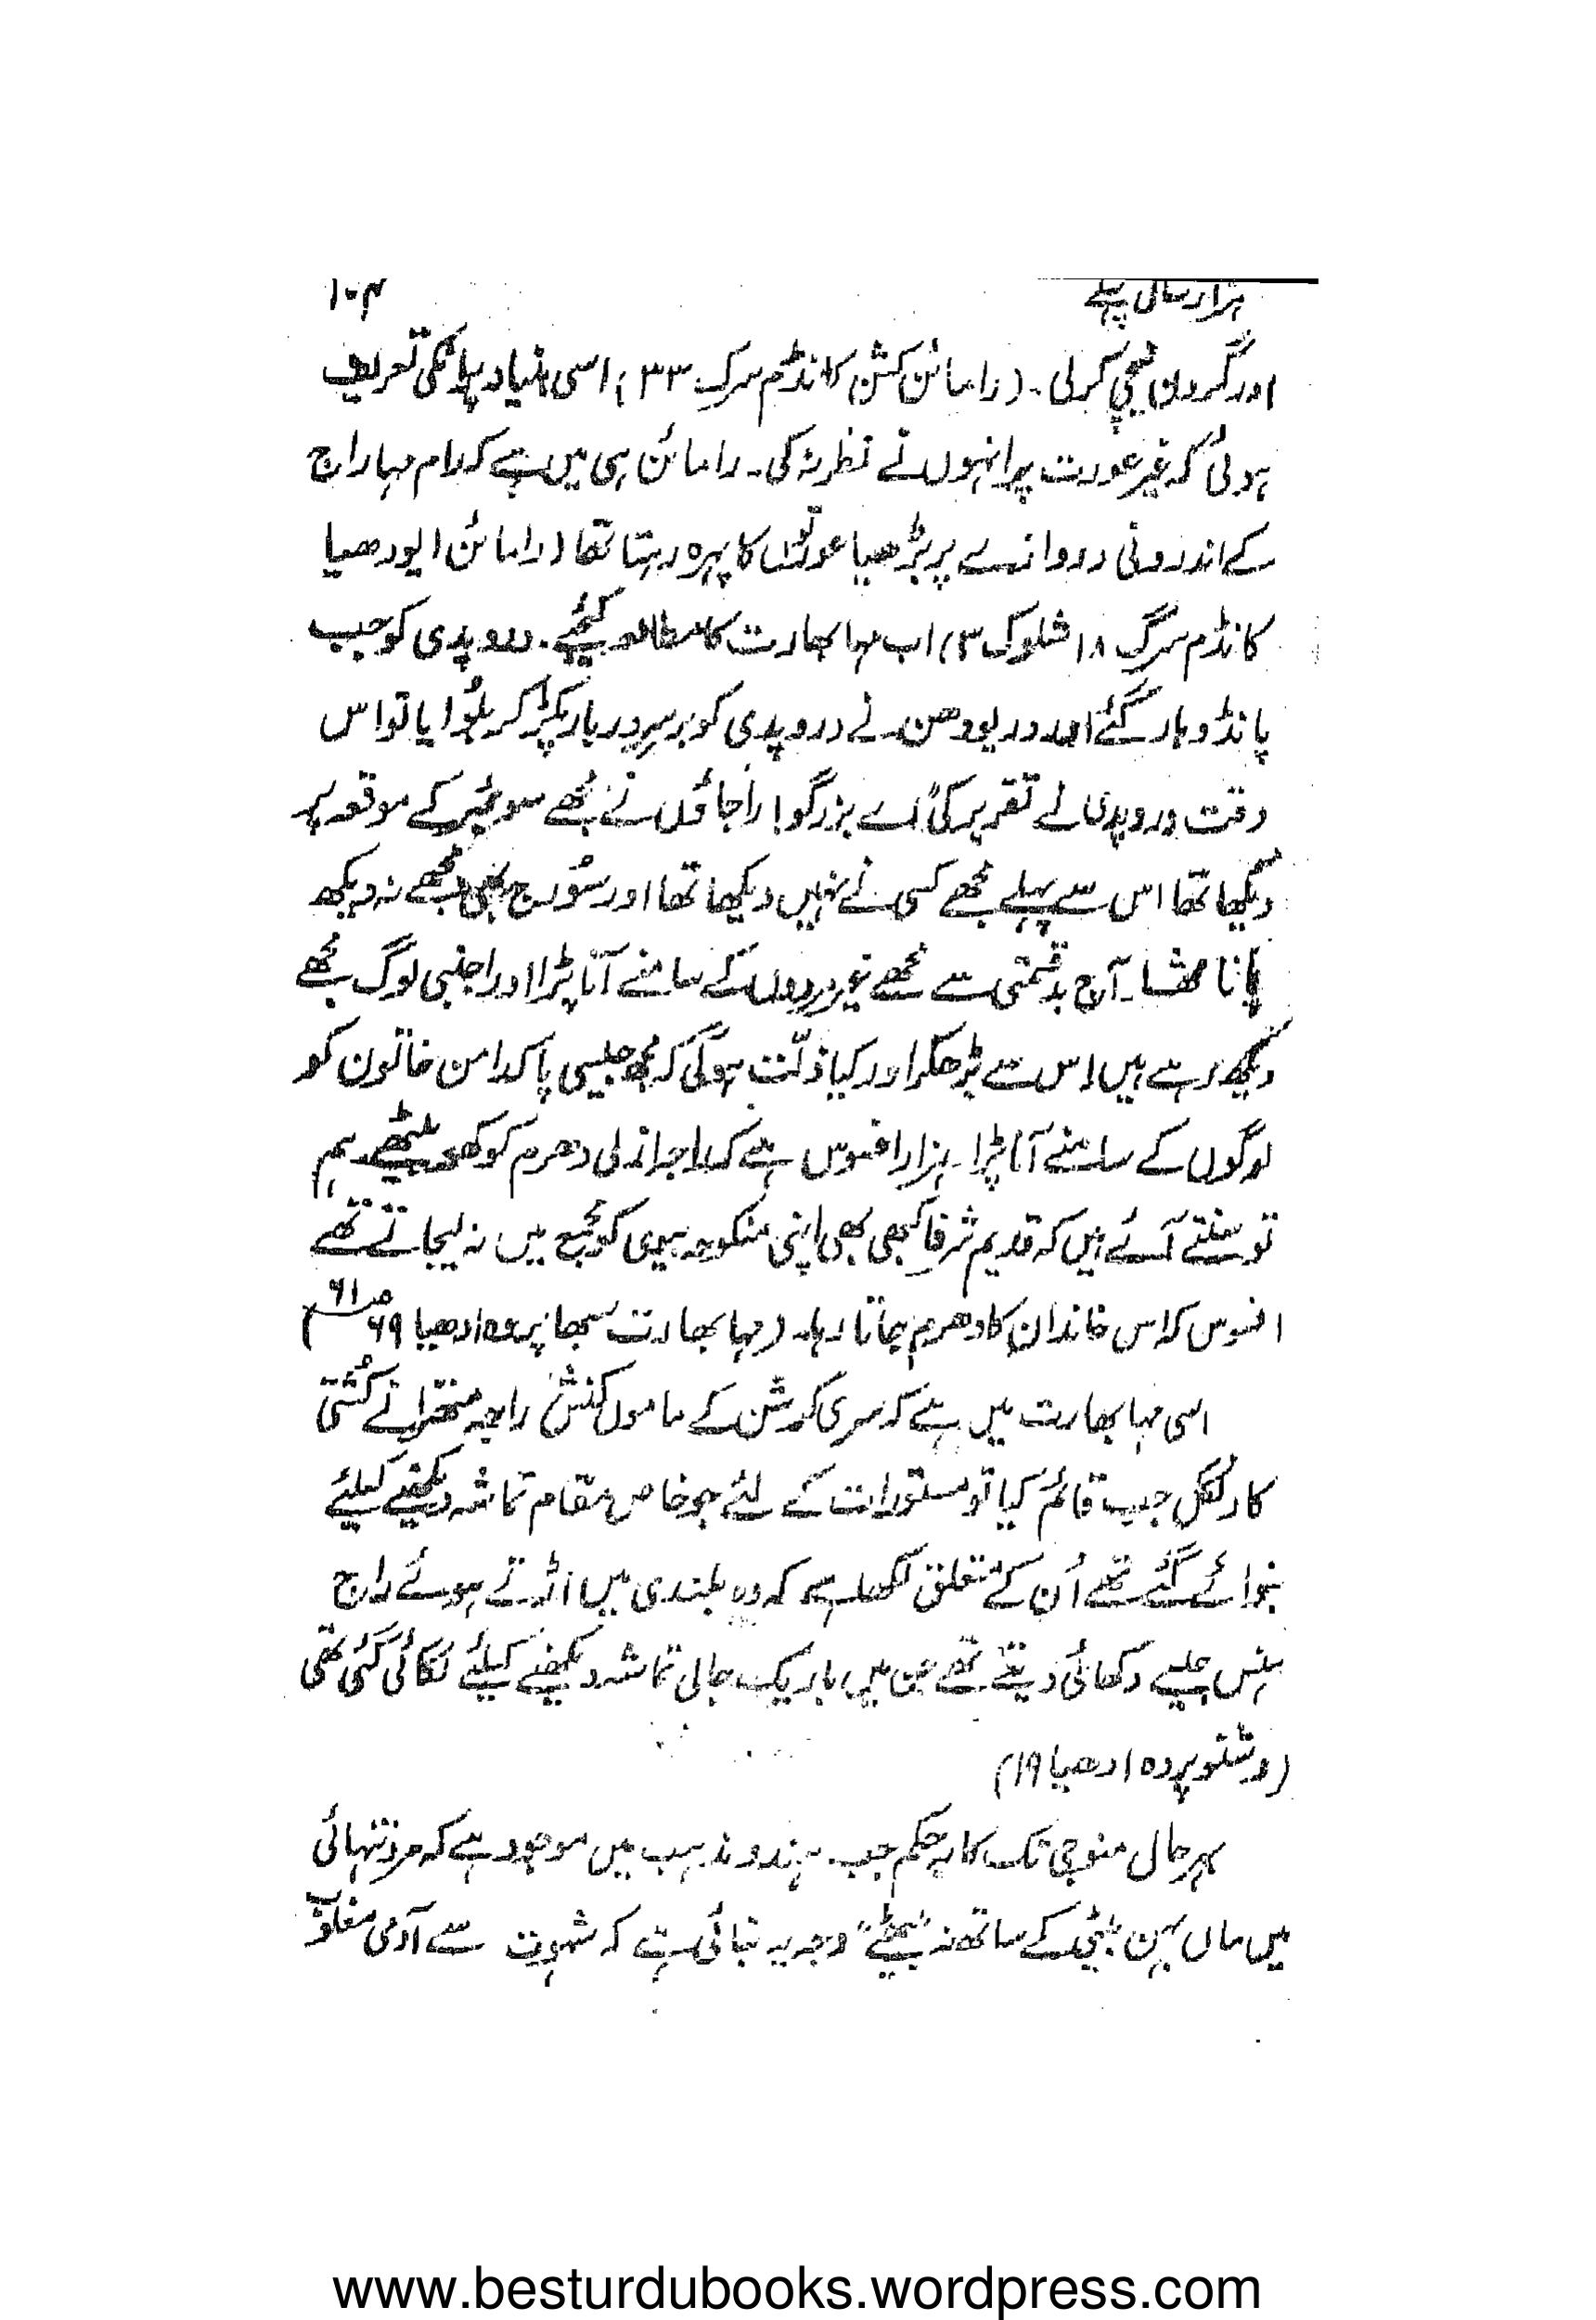 ہزار سال پہلے ۱۰۴
اور گردن نیچی کر لی۔ (رامائن کشن کانڈم سرگ ۳۳) اسی بنیاد پر انکی تعریف
ہوئی کہ غیر عورت پر انہوں نے نظر نہ کی۔ رامائن ہی میں ہے کہ رام مہاراج
کے اندرونی دروازے پر بڑھیا عورتوں کا پہرہ رہتا تھا (رامائن ایودھیا
کانڈم سرگ ۱۸ شلوک ۳) اب مہا بھارت کا مطالعہ کیجئے۔ دروپدی کو جب
پانڈو ہار گئے اور دریودھن نے دروپدی کو برسرِ دربار پکڑ کر بلوایا تو اس
وقت دروپدی نے تقریر کی "اے بزرگو! راجاؤں نے مجھے سوئمبر کے موقعہ پر
دیکھا تھا اس سے پہلے مجھے کسی نے نہیں دیکھا تھا اور سُورج بھی مجھے نہ دیکھ
پاتا تھا۔ آج بدقسمتی سے مجھے غیر مردوں کے سامنے آنا پڑا اور اجنبی لوگ مجھے
دیکھ رہے ہیں اس سے بڑھکر اور کیا ذلّت ہوگی کہ مجھ جیسی پاکدامن خاتون کو
لوگوں کے سامنے آنا پڑا۔ ہزار افسوس ہے کہ راجہ ازلی دھرم کو کھو بیٹھے۔ ہم
تو سنتے آئے ہیں کہ قدیم شرفا کبھی بھی اپنی منکوحہ بیوی کو مجمع میں نہ لیجاتے تھے"
افسوس کہ اس خاندان کا دھرم جاتا رہا۔ (مہا بھارت سبھا پروہ ادھیا ۶۹ صـ۶۱)
اسی مہا بھارت میں ہے کہ سری کرشن کے ماموں کنش راجہ متھرا نے کُشتی
کا دنگل جب قائم کیا تو مستورات کے لئے جو خاص مقام تماشہ دیکھنے کیلئے
بنوائے گئے تھے اُن کے متعلق لکھا ہے کہ وہ بلندی میں اڑتے ہوئے راج
ہنس جیسے دکھائی دیتے تھے جن میں باریک جالی تماشہ دیکھنے کیلئے لگائی گئی تھی
(وشنو پروہ ادھیا ۱۹)
بہرحال منوجی تک کا یہ حکم جب ہندو مذہب میں موجود ہے کہ مرد تنہائی
میں ماں بہن بیٹی کے ساتھ نہ بیٹھے" وجہ یہ بتائی ہے کہ شہوت سے آدمی مغلوب
www.besturdubooks.wordpress.com